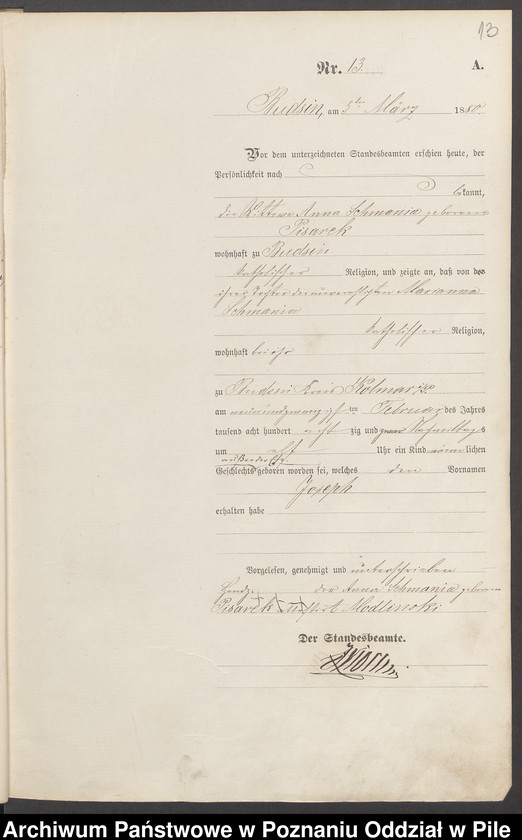 13
Nr. 13. A.
Budsin, am 5ten März 1880.
Vor dem unterzeichneten Standesbeamten erschien heute, der
Persönlichkeit nach
bekannt,
die Wittwe Anna Schmania geborene
Pisarek
wohnhaft zu Budsin
katholischer Religion, und zeigte an, daß von der
ihrer Tochter der unverehelichten Marianna
Schmania
katholischer Religion,
wohnhaft bei ihr
zu Budsin Kreis Kolmar
am neunundzwanzigsten Februar des Jahres
tausend acht hundert achtzig und zwar Nachmittags
um acht Uhr ein Kind männlichen
Geschlechts geboren worden sei, welches den Vornamen
Joseph
erhalten habe
Vorgelesen, genehmigt und unterschrieben
der Anna Schmania geborene
Pisarek +++ A Modlinski
Der Standesbeamte.
Archiwum Państwowe w Poznaniu Oddział w Pile